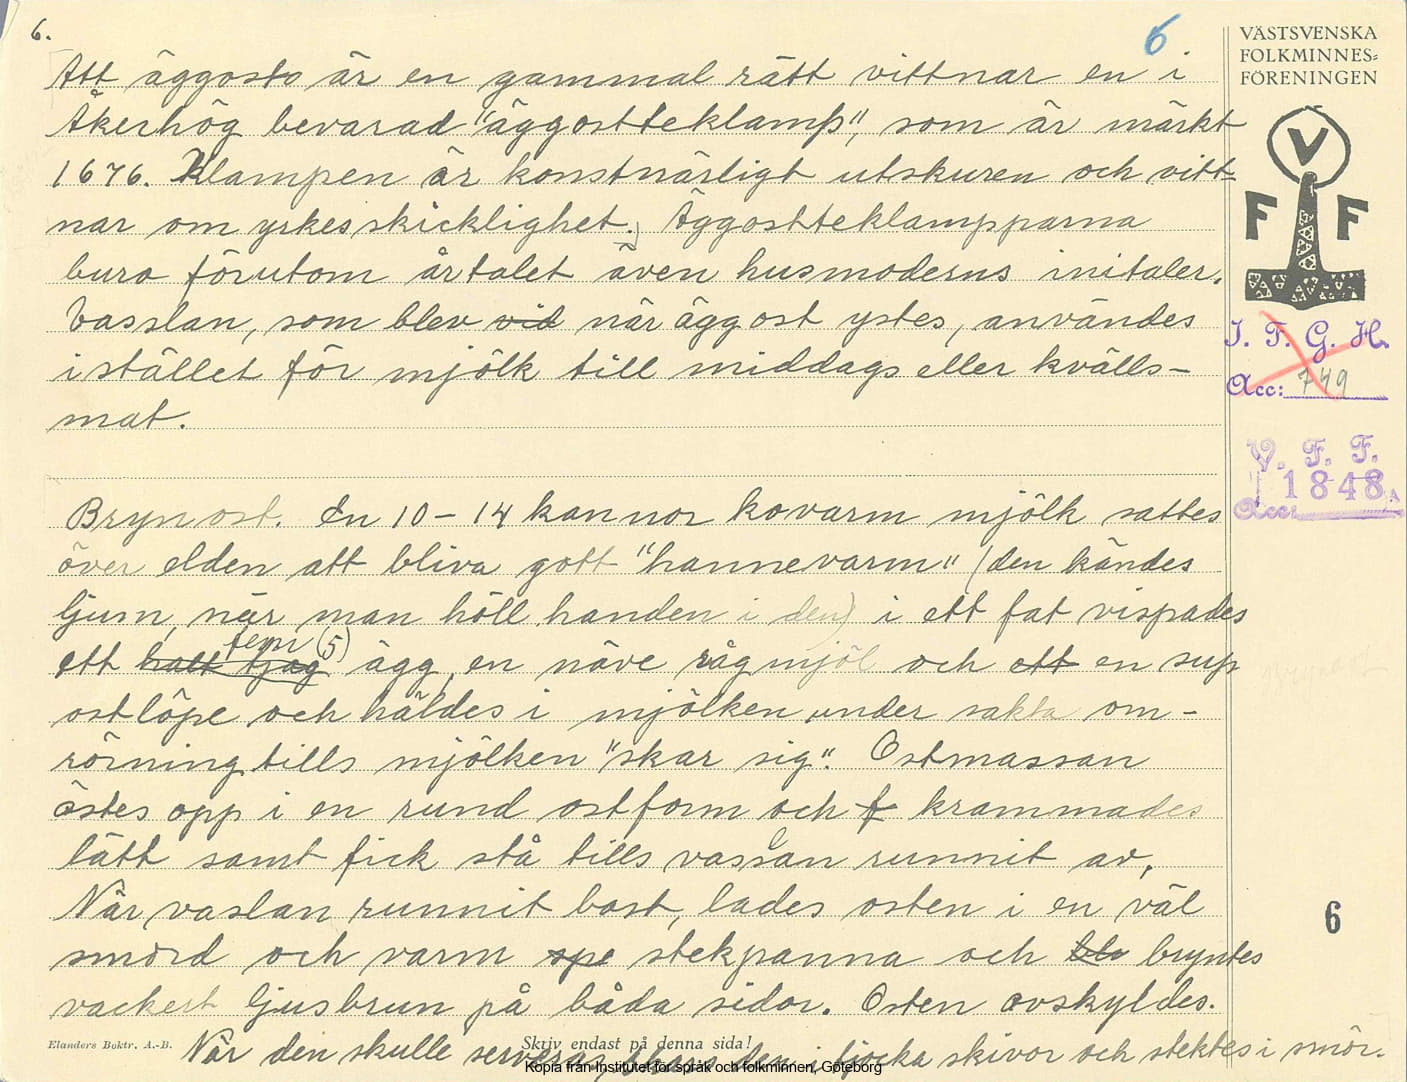 6.
6
VÄSTSVENSKA
FOLKMINNES=
FÖRENINGEN
V
F F
I. F. G. H.
Acc: 749
V. F. F.
1848
Acc:
6
Att äggosto är en gammal rätt vittnar en i
Åkerhög bevarad "äggostteklamp", som är märkt
1676. Klampen är konstnärligt utskuren och vitt-
nar om yrkesskicklighet. Äggostteklampparna
buro förutom årtalet även husmoderns initaler.
Vasslan, som blev vid när äggost ystes, användes
i stället för mjölk till middags eller kvälls-
mat.
Brynost. En 10-14 kannor kovarm mjölk sattes
över elden att bliva gott "hannevarm" (den kändes
ljum, när man höll handen i den) i ett fat vispades
fem (5)
ett halt tjag ägg, en näve rågmjöl och ett en sup
ostlöpe och häldes i mjölken under sakta om-
rörning tills mjölken "skar sig". Ostmassan
östes opp i en rund ostform och f krammades
lätt samt fick stå tills vasslan runnit av,
När vaslan runnit bort, lades osten i en väl
smord och varm spe stekpanna och blo bryntes
vackert ljusbrun på båda sidor. Osten avskyldes.
När den skulle serveras, skars den i tjocka skivor och stektes i smör.
Elanders Boktr. A.-B.
Skriv endast på denna sida!
Kopia från Institutet för språk och folkminnen, Göteborg